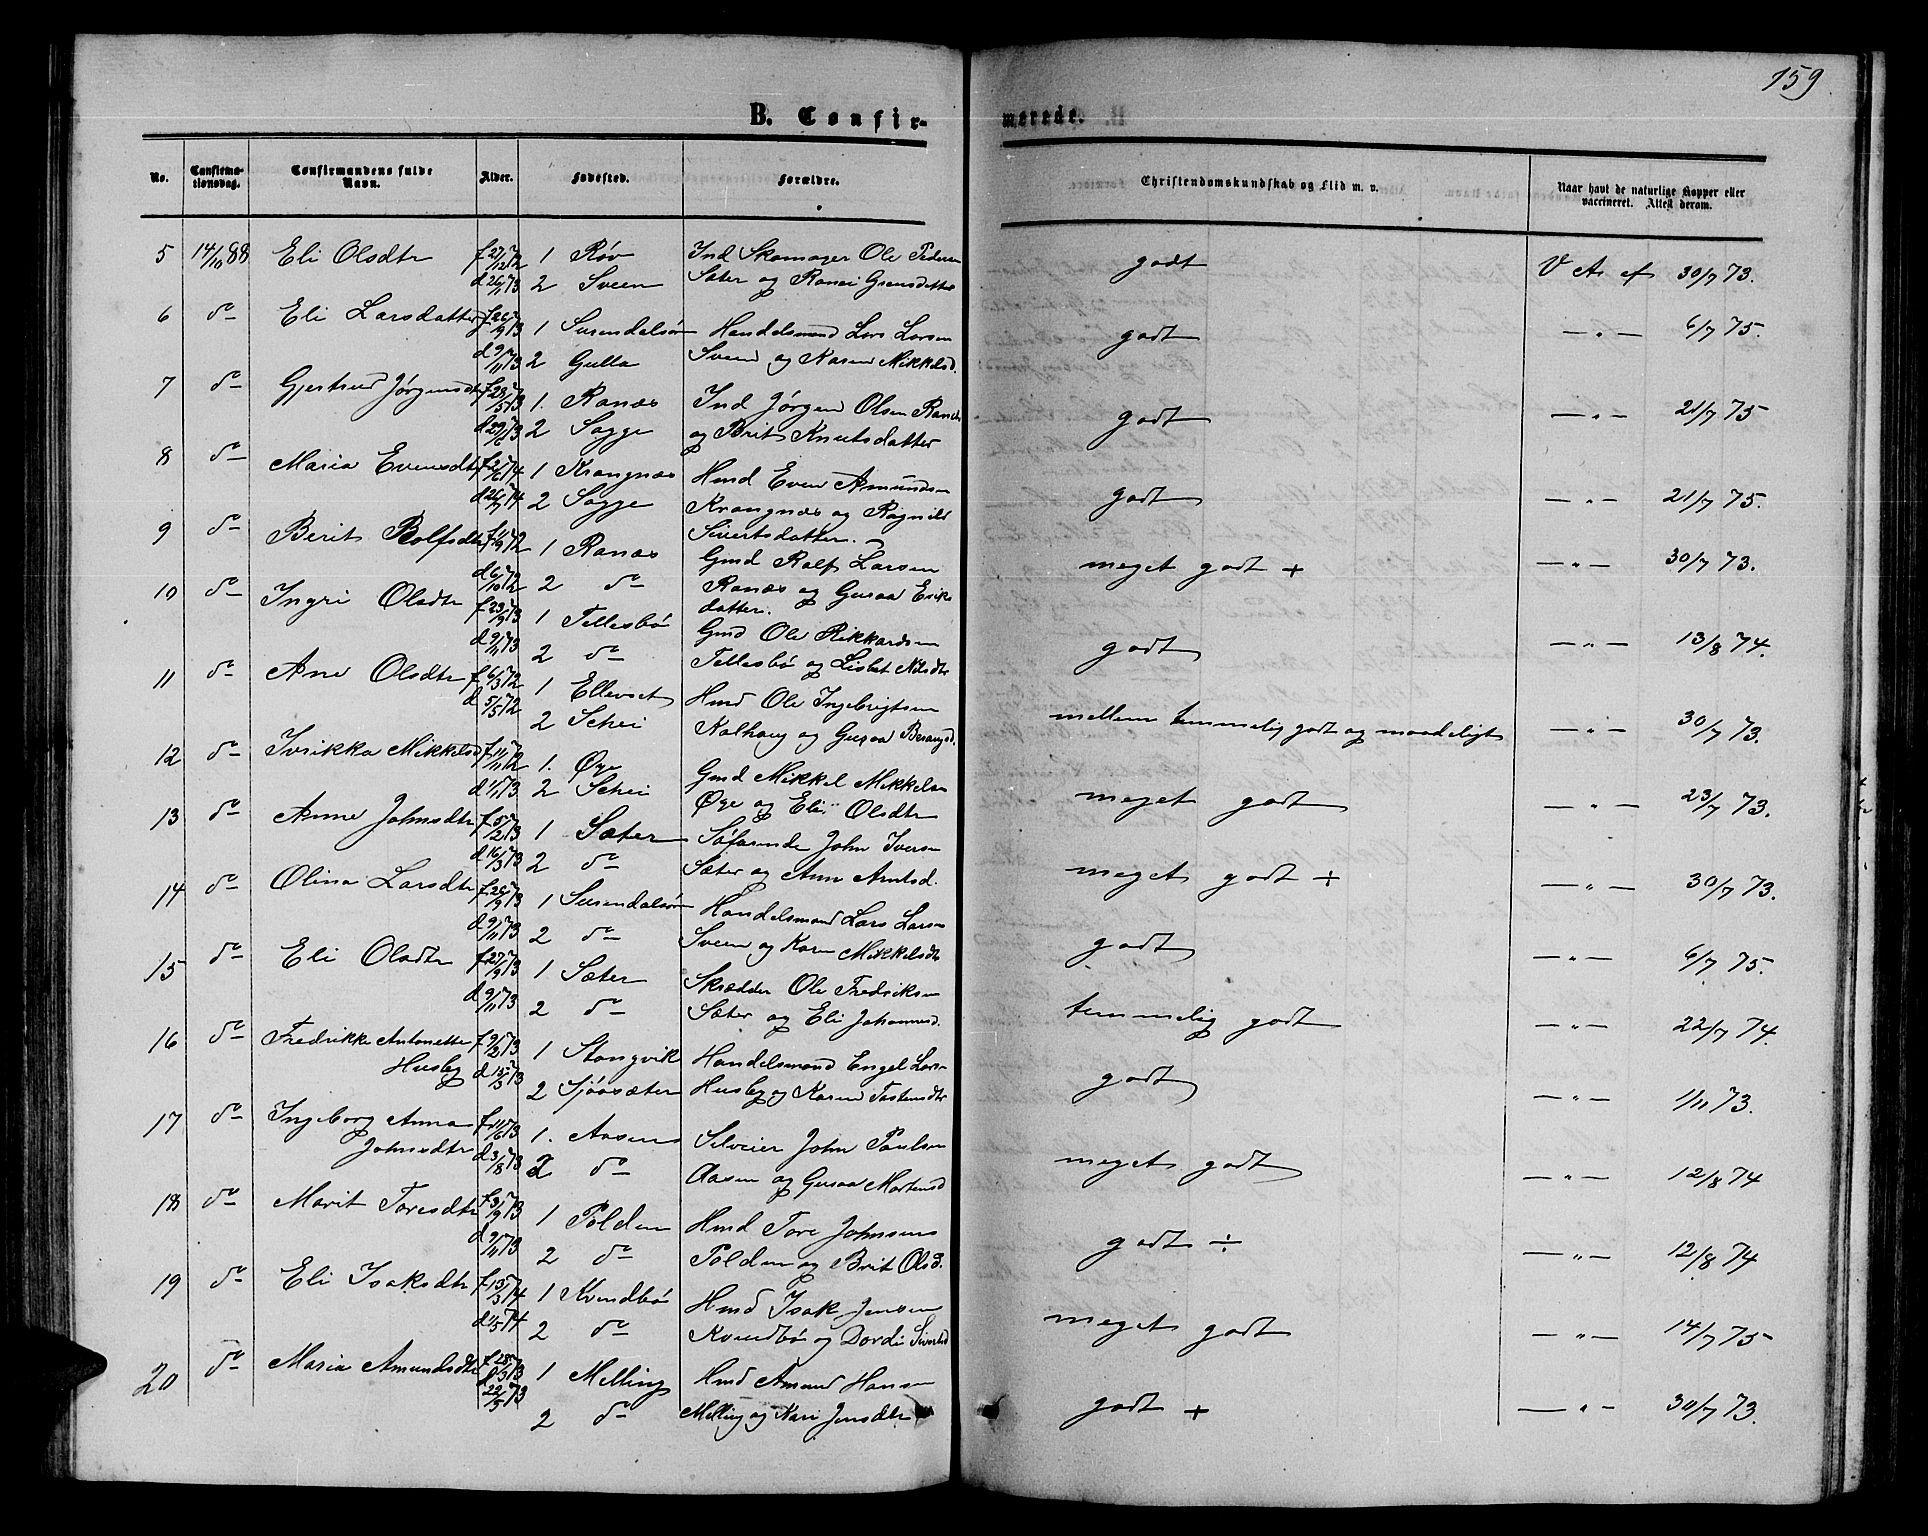 159
B. Confir-
merede.
No.
Confirma-
tionsdag.
Confirmandens fulde
Navn.
Alder.
Fødested.
Forældre.
Christendomskundskab og Flid m. v.
Naar havt de naturlige Kopper eller
vaccineret. Attest derom.
5 14/10 88 Eli Olsdtr f 27/12 72 1 Røv Ind Skomager Ole Pedersen godt V At af 30/7 73.
d 26/1 73 2 Sveen Sæter og Ranei
6 do Eli Larsdatter f 26/9 73 1 Surendalsør Handelsmand Lars Larsen godt — " — 6/7 75.
d 9/11 73 2 Gulla Sveen og Karen Mikkelsd.
7 do Gjertrud Jørgensdtr f 23/5 73 1. Ranæs Ind Jørgen Olsen Ranæs godt — " — 21/7 75
d 29/6 73 2 Sogge og Brit Knutsdatter
8 do Maria Evensdtr f 2/6 74 1 Krangnæs Hmd Even Amundsen godt — " — 21/7 75.
d 26/7 74 2 Sogge Krangnæs og Ragnild
Sivertsdatter.
9 do Berit Rolfsdtr f 11/9 72 1 Ranæs Gmd Rolf Larsen meget godt + — " — 30/7 73.
d 6/10 72 2 do Ranæs og Guraa Eriks
datter.
10 do Ingri Olsdtr f 23/9 73 1 Tellesbø Gmd Ole Rikkardsen godt — " — 13/8 74.
d 9/11 73 2 do Tellesbø og Lisbet Nilsdtr
11 do Ane Olsdtr f 6/3 72 1 Ellevset Hmd Ole Ingebrigtsen mellem temmelig godt og maadeligt — " — 30/7 73.
d 5/5 72 2 Schei Kalhaug og Guraa
12 do Ivrikka Mikkelsd f 11/11 72 1. Øye Gmd Mikkel Mikkelsen meget godt — " — 23/7 73.
d 1/1 73 2 Schei Øye og Eli Olsdtr
13 do Anne Johnsdtr f 5/2 73 1 Sæter Søfarende John Iversen meget godt + — " — 30/7 73.
d 16/3 73 2 do Sæter og Ann Arntsd.
14 do Olina Larsdtr f 26/9 73 1 Surendalsør Handelsmand Lars Larsen godt — " — 6/7 75.
d 9/11 73 2 do Sveen og Karen Mikkelsdtr
15 do Eli Olsdtr f 27/9 73 1 Sæter Skrædder Ole Fredriksen temmelig godt — " — 22/7 74.
d 9/11 73 2 do Sæter og Eli Johannesd.
16 do Fredrikke Antonette f 9/2 73 1 Stangvik Handelsmand Engel Lars- godt — " — 1/11 73.
Husby d 15/3 73 2 Sjøasæter Husby og Karen Tostensdtr
17 do Ingeborg Anna f 11/6 73 1. Aasen Selveier John Paulsen meget godt — " — 12/8 74
Johnsdtr d 3/8 73 2 do Aasen og Guraa Mortensd
18 do Marit Toresdtr f 3/9 73 1 Polden Hmd Tore Johnsen godt ÷ — " — 12/8 74
d 9/11 73 2 do Polden og Brit Olsd.
19 do Eli Isaksdtr f 13/3 74 1 Kvendbø Hmd Isak Jensen meget godt — " — 14/7 75
d 1/5 74 2 do Kvendbø og Dordi Sivertsd
20 do Maria Amundsdtr f 28/3 73 1 Melling Hmd Amund Hansen godt + — " — 30/7 73.
d 22/5 73 2 do Melling og Kari Jensdtr